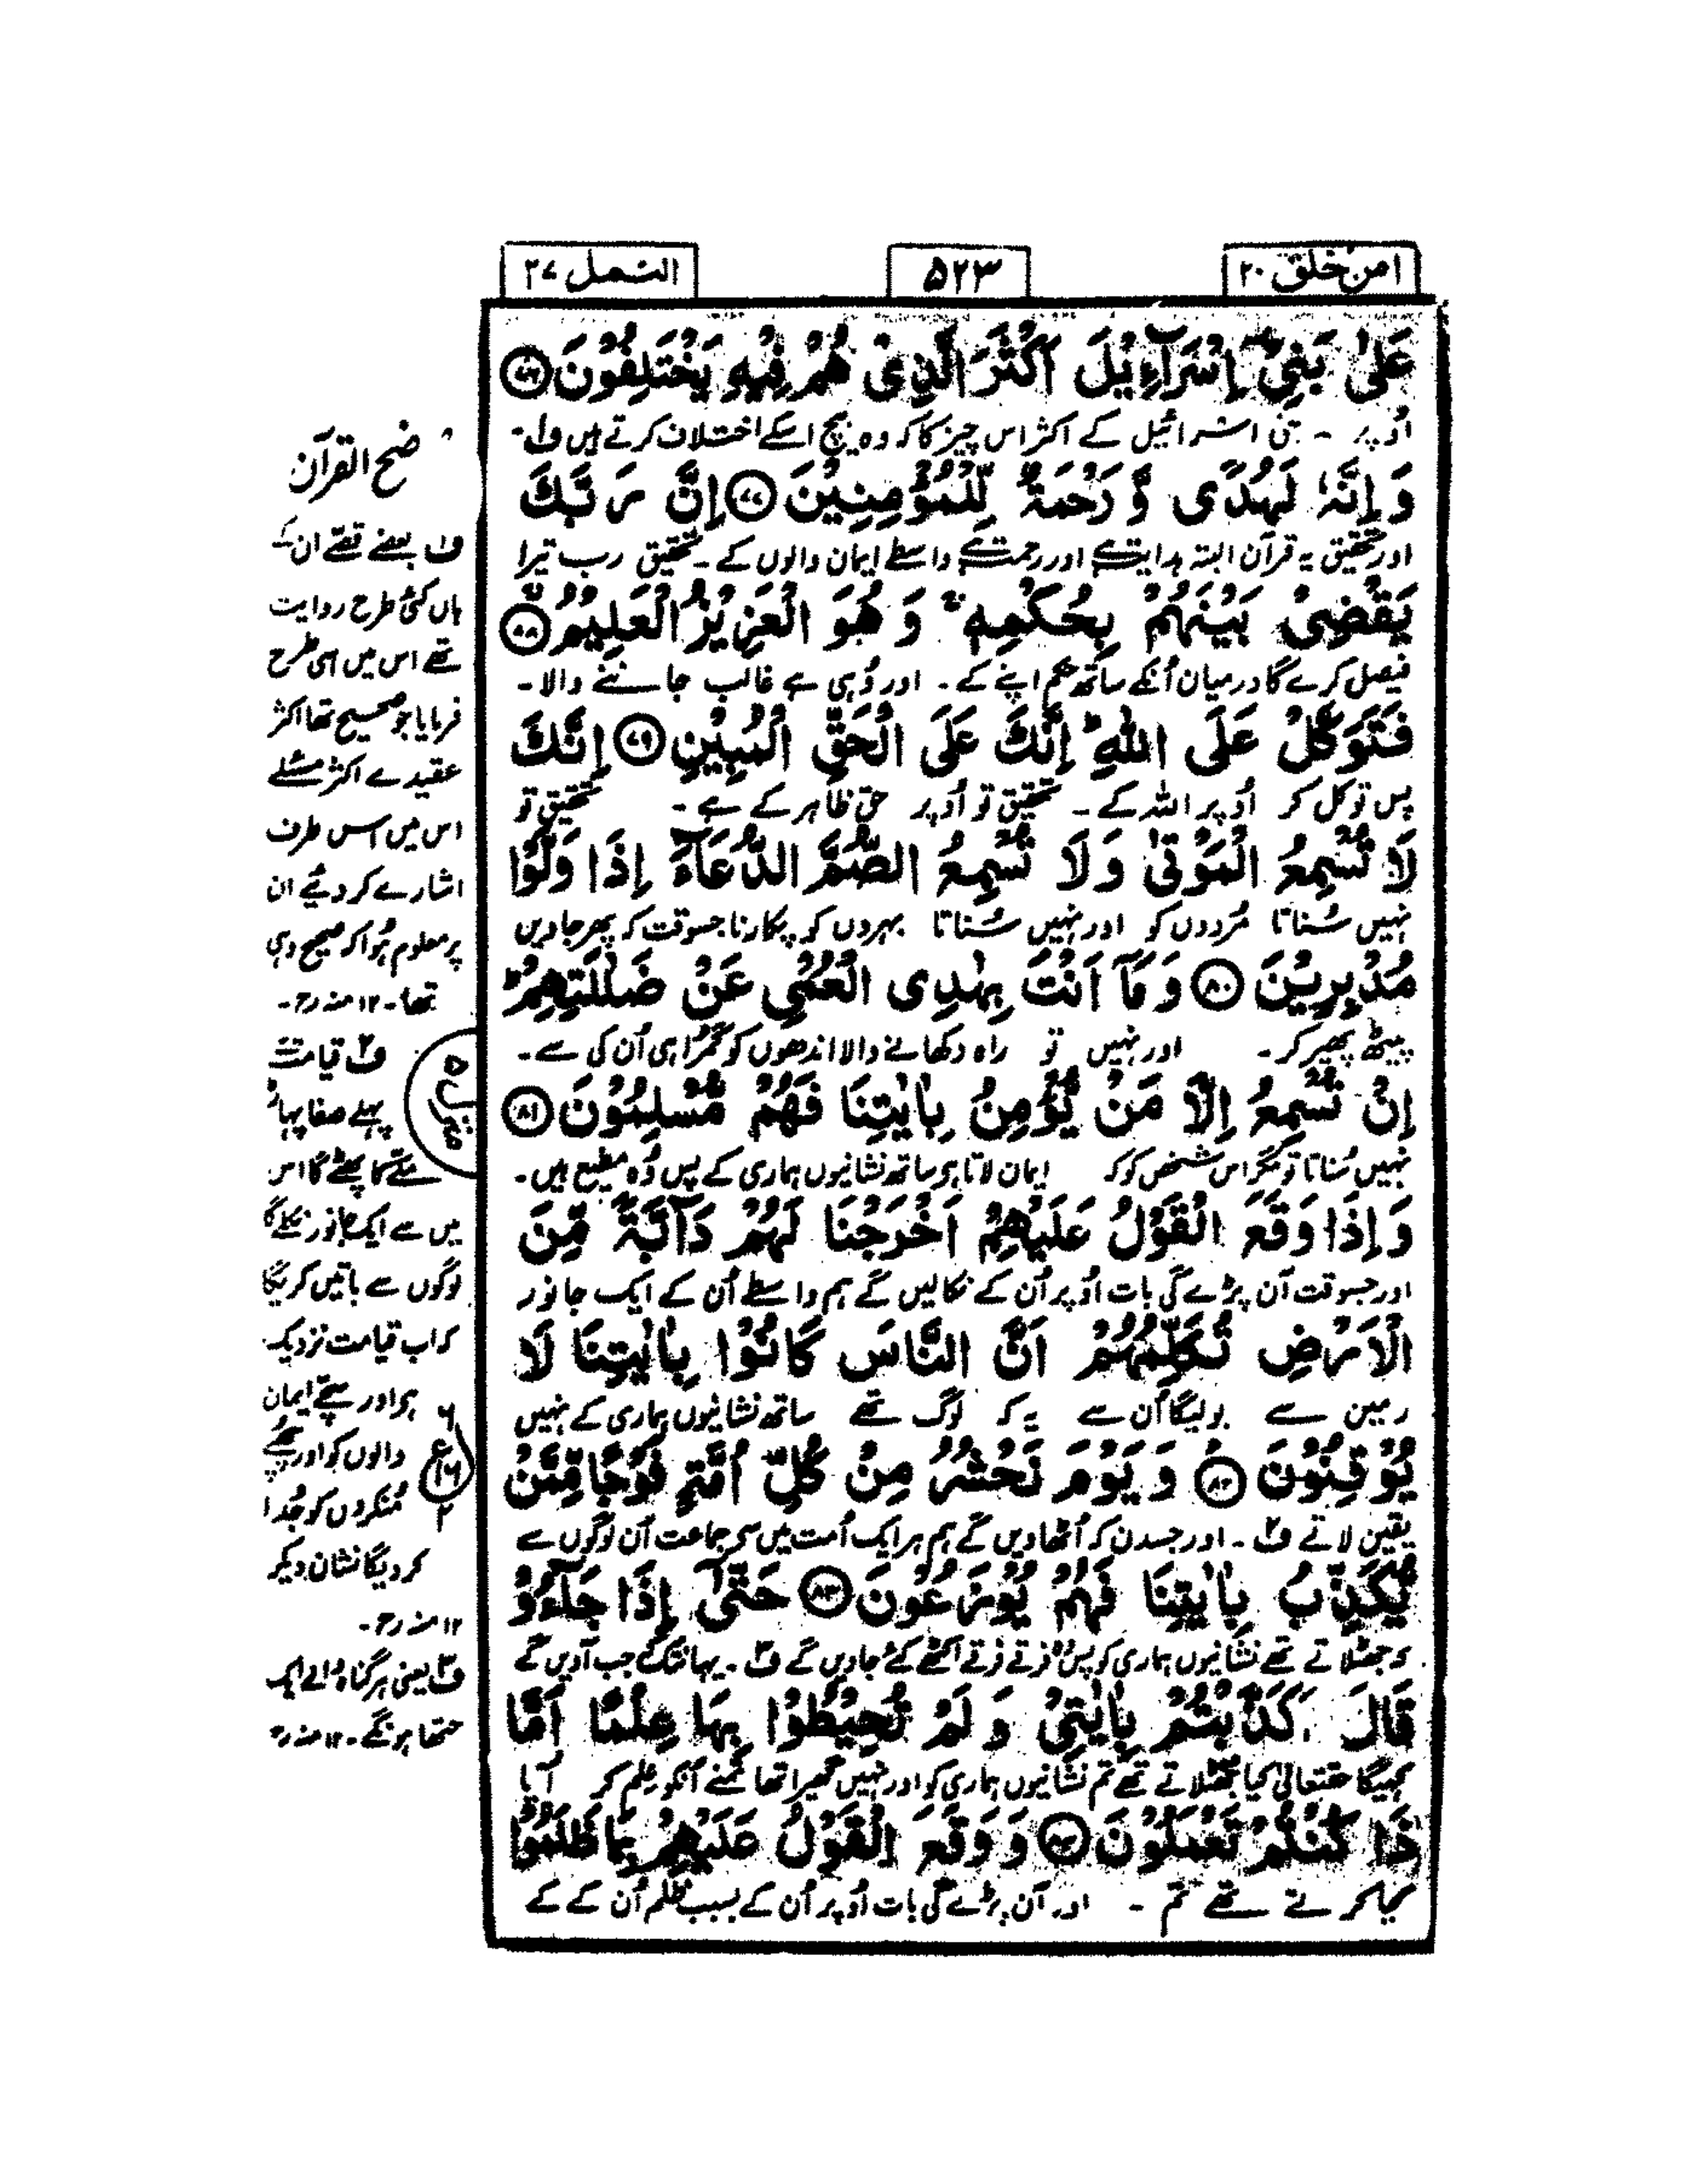 امن خلق ۲۰
۵۲۳
النمل ۲۷
عَلٰى بَنِىْۤ اِسْرَآءِيْلَ اَكْثَرَ الَّذِىْ هُمْ فِيْهِ يَخْتَلِفُوْنَ ۷۶
اُوپر بنی اسرائیل کے اکثر اس چیز کا کہ وہ بیچ اسکے اختلاف کرتے ہیں ف۱۔
وَ اِنَّهٗ لَهُدًى وَّ رَحْمَةٌ لِّلْمُؤْمِنِيْنَ ۷۷ اِنَّ رَبَّكَ
اور تحقیق یہ قرآن البتہ ہدایت ہے اور رحمت ہے واسطے ایمان والوں کے۔ تحقیق رب تیرا
يَقْضِىْ بَيْنَهُمْ بِحُكْمِهٖ ۚ وَ هُوَ الْعَزِيْزُ الْعَلِيْمُ ۷۸
فیصل کرے گا درمیان اُنکے ساتھ حکم اپنے کے۔ اور وُہی ہے غالب جاننے والا۔
فَتَوَكَّلْ عَلَى اللّٰهِ ؕ اِنَّكَ عَلَى الْحَقِّ الْمُبِيْنِ ۷۹ اِنَّكَ
پس توکل کر اُوپر اللہ کے۔ تحقیق تو اُوپر حق ظاہر کے ہے۔ تحقیق تو
لَا تُسْمِعُ الْمَوْتٰى وَ لَا تُسْمِعُ الصُّمَّ الدُّعَآءَ اِذَا وَلَّوْا
نہیں سُناتا مُردوں کو اور نہیں سُناتا بہروں کو پکارنا جسوقت کہ پھر جاویں
مُدْبِرِيْنَ ۸۰ وَ مَاۤ اَنْتَ بِهٰدِى الْعُمْىِ عَنْ ضَلٰلَتِهِمْ ؕ
پیٹھ پھیر کر۔ اور نہیں تو راہ دکھانے والا اندھوں کو گمراہی اُن کی سے۔
اِنْ تُسْمِعُ اِلَّا مَنْ يُّؤْمِنُ بِاٰيٰتِنَا فَهُمْ مُّسْلِمُوْنَ ۸۱
نہیں سُناتا تو مگر اس شخص کو کہ ایمان لاتا ہو ساتھ نشانیوں ہماری کے پس وُہ مطیع ہیں۔
وَ اِذَا وَقَعَ الْقَوْلُ عَلَيْهِمْ اَخْرَجْنَا لَهُمْ دَآبَّةً مِّنَ
اور جسوقت آن پڑے گی بات اُوپر اُن کے نکالیں گے ہم واسطے اُن کے ایک جانور
الْاَرْضِ تُكَلِّمُهُمْ اَنَّ النَّاسَ كَانُوْا بِاٰيٰتِنَا لَا
زمین سے بولیگا اُن سے یہ کہ لوگ تھے ساتھ نشانیوں ہماری کے نہیں
يُوْقِنُوْنَ ۸۲ وَ يَوْمَ نَحْشُرُ مِنْ كُلِّ اُمَّةٍ فَوْجًا مِّمَّنْ
یقین لاتے ف۲۔ اور جسدن کہ اُٹھاویں گے ہم ہر ایک اُمت میں سے جماعت اُن لوگوں سے
يُّكَذِّبُ بِاٰيٰتِنَا فَهُمْ يُوْزَعُوْنَ ۸۳ حَتّٰىۤ اِذَا جَآءُوْ
کہ جھٹلاتے تھے نشانیوں ہماری کو پس اکٹھے کئے جاویں گے ف۳۔ یہانتک کہ جب آویں گے
قَالَ اَكَذَّبْتُمْ بِاٰيٰتِىْ وَ لَمْ تُحِيْطُوْا بِهَا عِلْمًا اَمَّا
کہیگا حقتعالیٰ کیا جھٹلاتے تھے تم نشانیوں ہماری کو اور نہیں گھیرا تھا تمنے اُنکو علم کر آیا
ذَا كُنْتُمْ تَعْمَلُوْنَ ۸۴ وَ وَقَعَ الْقَوْلُ عَلَيْهِمْ بِمَا ظَلَمُوْا
کیا کرتے تھے تم۔ اور آن پڑے گی بات اُوپر اُن کے بسبب ظلم اُن کے کے
ضح القرآن
ف۱ بعضے قصے ان کے
ہاں کئی طرح روایت
تھے اس میں اسی طرح
فرمایا جو صحیح تھا اکثر
عقیدے اکثر مسئلے
اس میں اس طرف
اشارے کر دیئے ان
پر معلوم ہُوا کہ صحیح وہی
تھا۔ ۱۲ منہ رح۔
ف۲ قیامت
پہلے صفا پہاڑ
مکے کا پھٹے گا اس
میں سے ایک جانور نکلے گا
لوگوں سے باتیں کریگا
کہ اب قیامت نزدیک
ہے اور سچے ایمان
والوں کو اور چھپے
مُنکروں کو جُدا
کر دیگا نشان دیکر
۱۲ منہ رح۔
ف۳ یعنی ہر گناہ والے ایک
جتھا ہونگے۔ ۱۲ منہ رح
منزل ۵
۶
ع
۱۶
۲